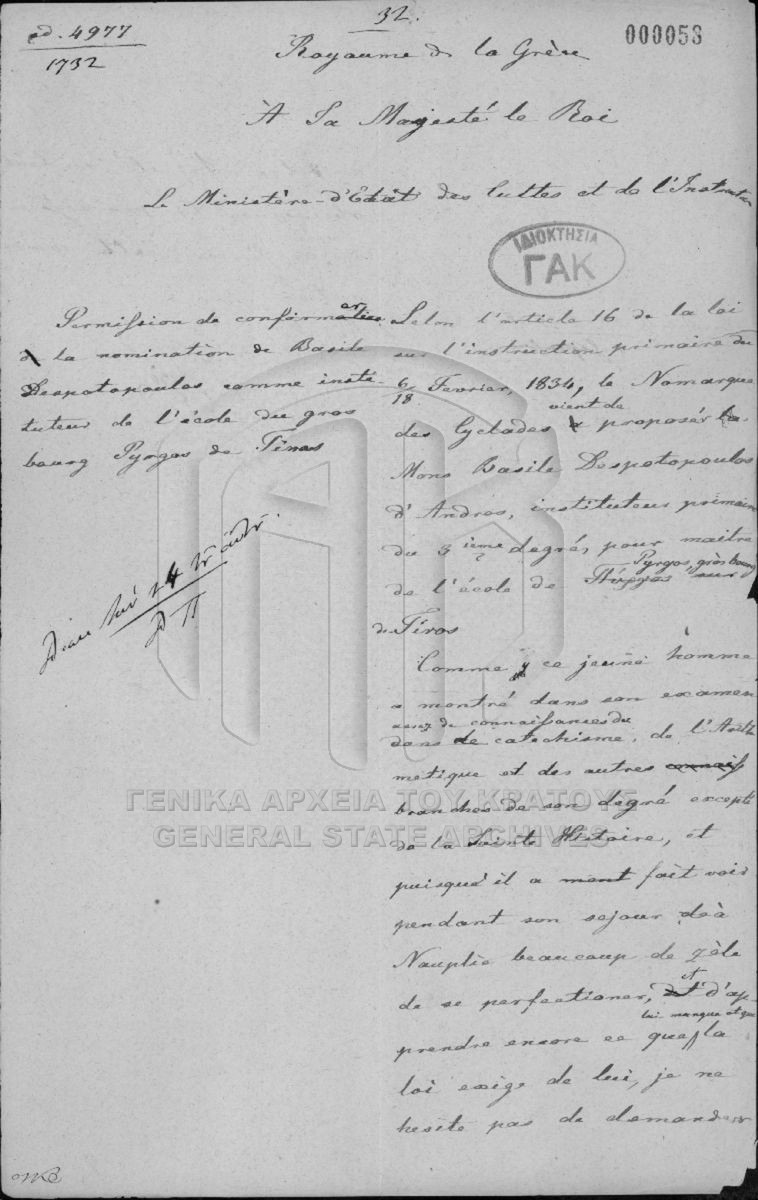 32.
4977
1732
000058
Royaume de la Grèce
À Sa Majesté le Roi
Le Ministère d'Etat des Cultes et de l'Instruction
ΙΔΙΟΚΤΗΣΙΑ
ΓΑΚ
Permission de confirmer
la nomination de Basile
Despotopoulos comme insti-
tuteur de l'école du gros
bourg Pyrgos de Tinos
Selon l'article 16 de la loi
sur l'instruction primaire du
6/18 Fevrier, 1834, le Nomarque
des Cyclades vient de proposér
Mons Basile Despotopoulos
d'Andros, instituteur primaire
du 3 ième degré, pour maitre
de l'école de Pyrgos, gros bourg
de Tinos
Comme ce jeune homme
a montré dans son examen
assez de connaissances du
catechisme, de l'Arith
metique et des autres
branches de son degré excepté
de la Sainte Histoire, et
puisqu'il a fait voir
pendant son sejour à
Nauplie beaucoup de zèle
de se perfectioner, et d'ap-
prendre encore ce qui lui manque et que la
loi exige de lui, je ne
hesite pas de demander
ΓΕΝΙΚΑ ΑΡΧΕΙΑ ΤΟΥ ΚΡΑΤΟΥΣ
GENERAL STATE ARCHIVES